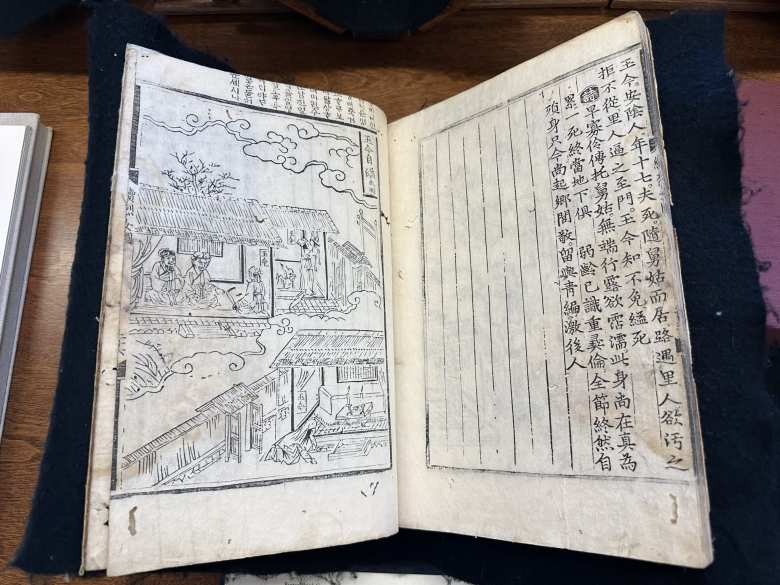 玉今。安陰人。年十七。夫死。隨舅姑而居。路遇里人欲汚之
拒不從。里人逼之至門。玉今知不免縊死
詩 早寡伶俜托舅姑。無端行露欲霑濡。此身尚在真為
累一死終當地下俱 弱齡已識重彝倫全節終然自
殞身只今尚起鄉閭敬。留與青編激後人
玉今自縊 本國
玉今
玉今